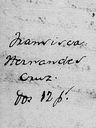 Francisca
Hernandes
Cruz.
dos 12 p.